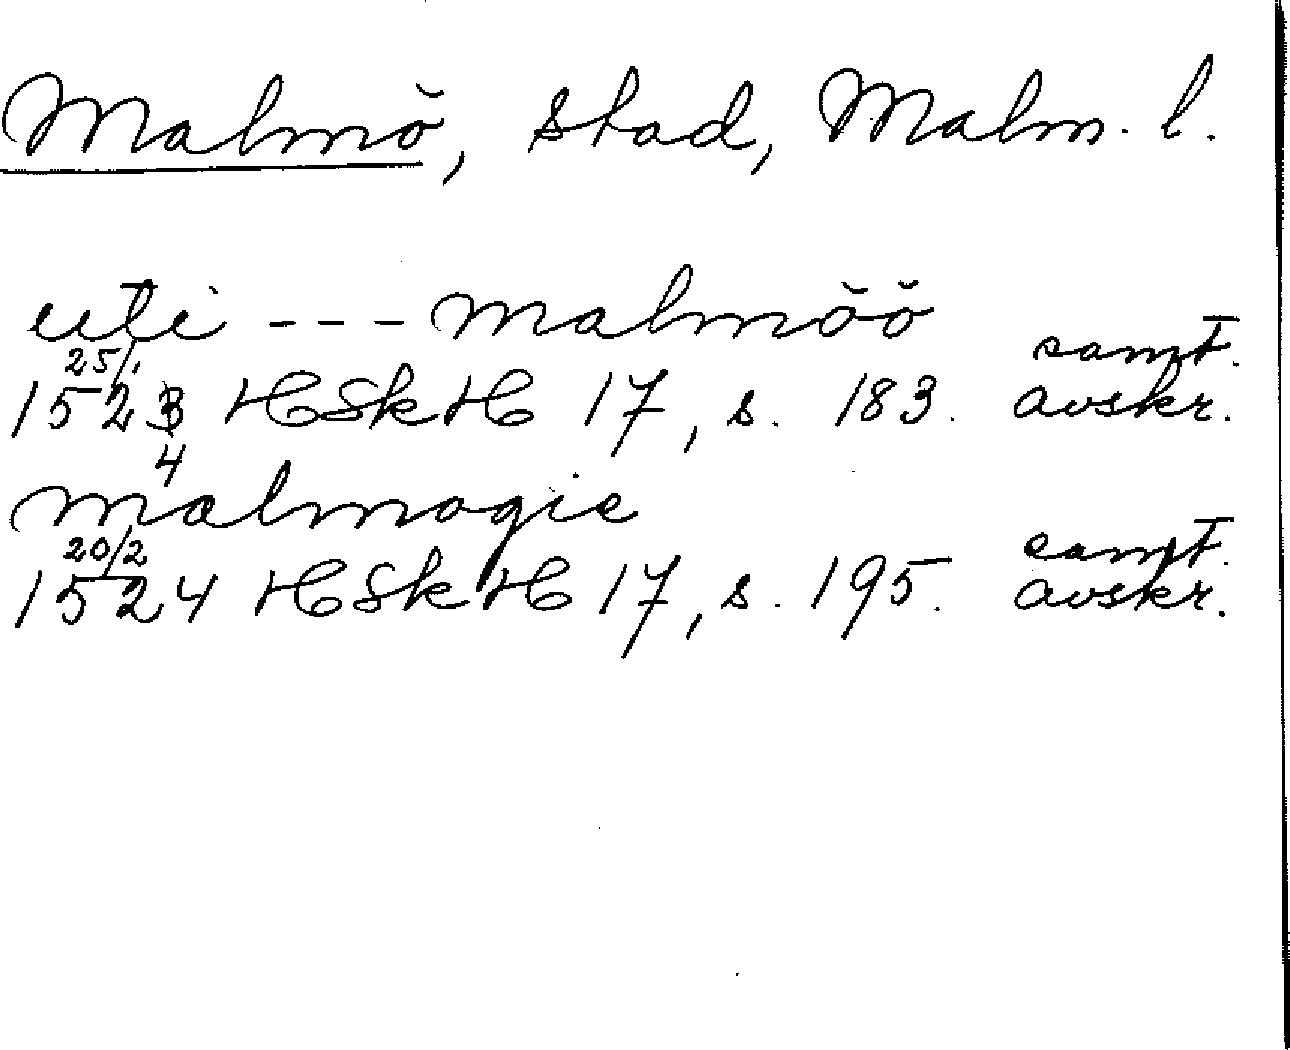 Malmö, stad, Malm. l.
uti --- malmöö
25/1 samt.
1523 HSkH 17, s. 183. avskr.
4
malmogie
20/2 samt.
1524 HSkH 17, s. 195. avskr.